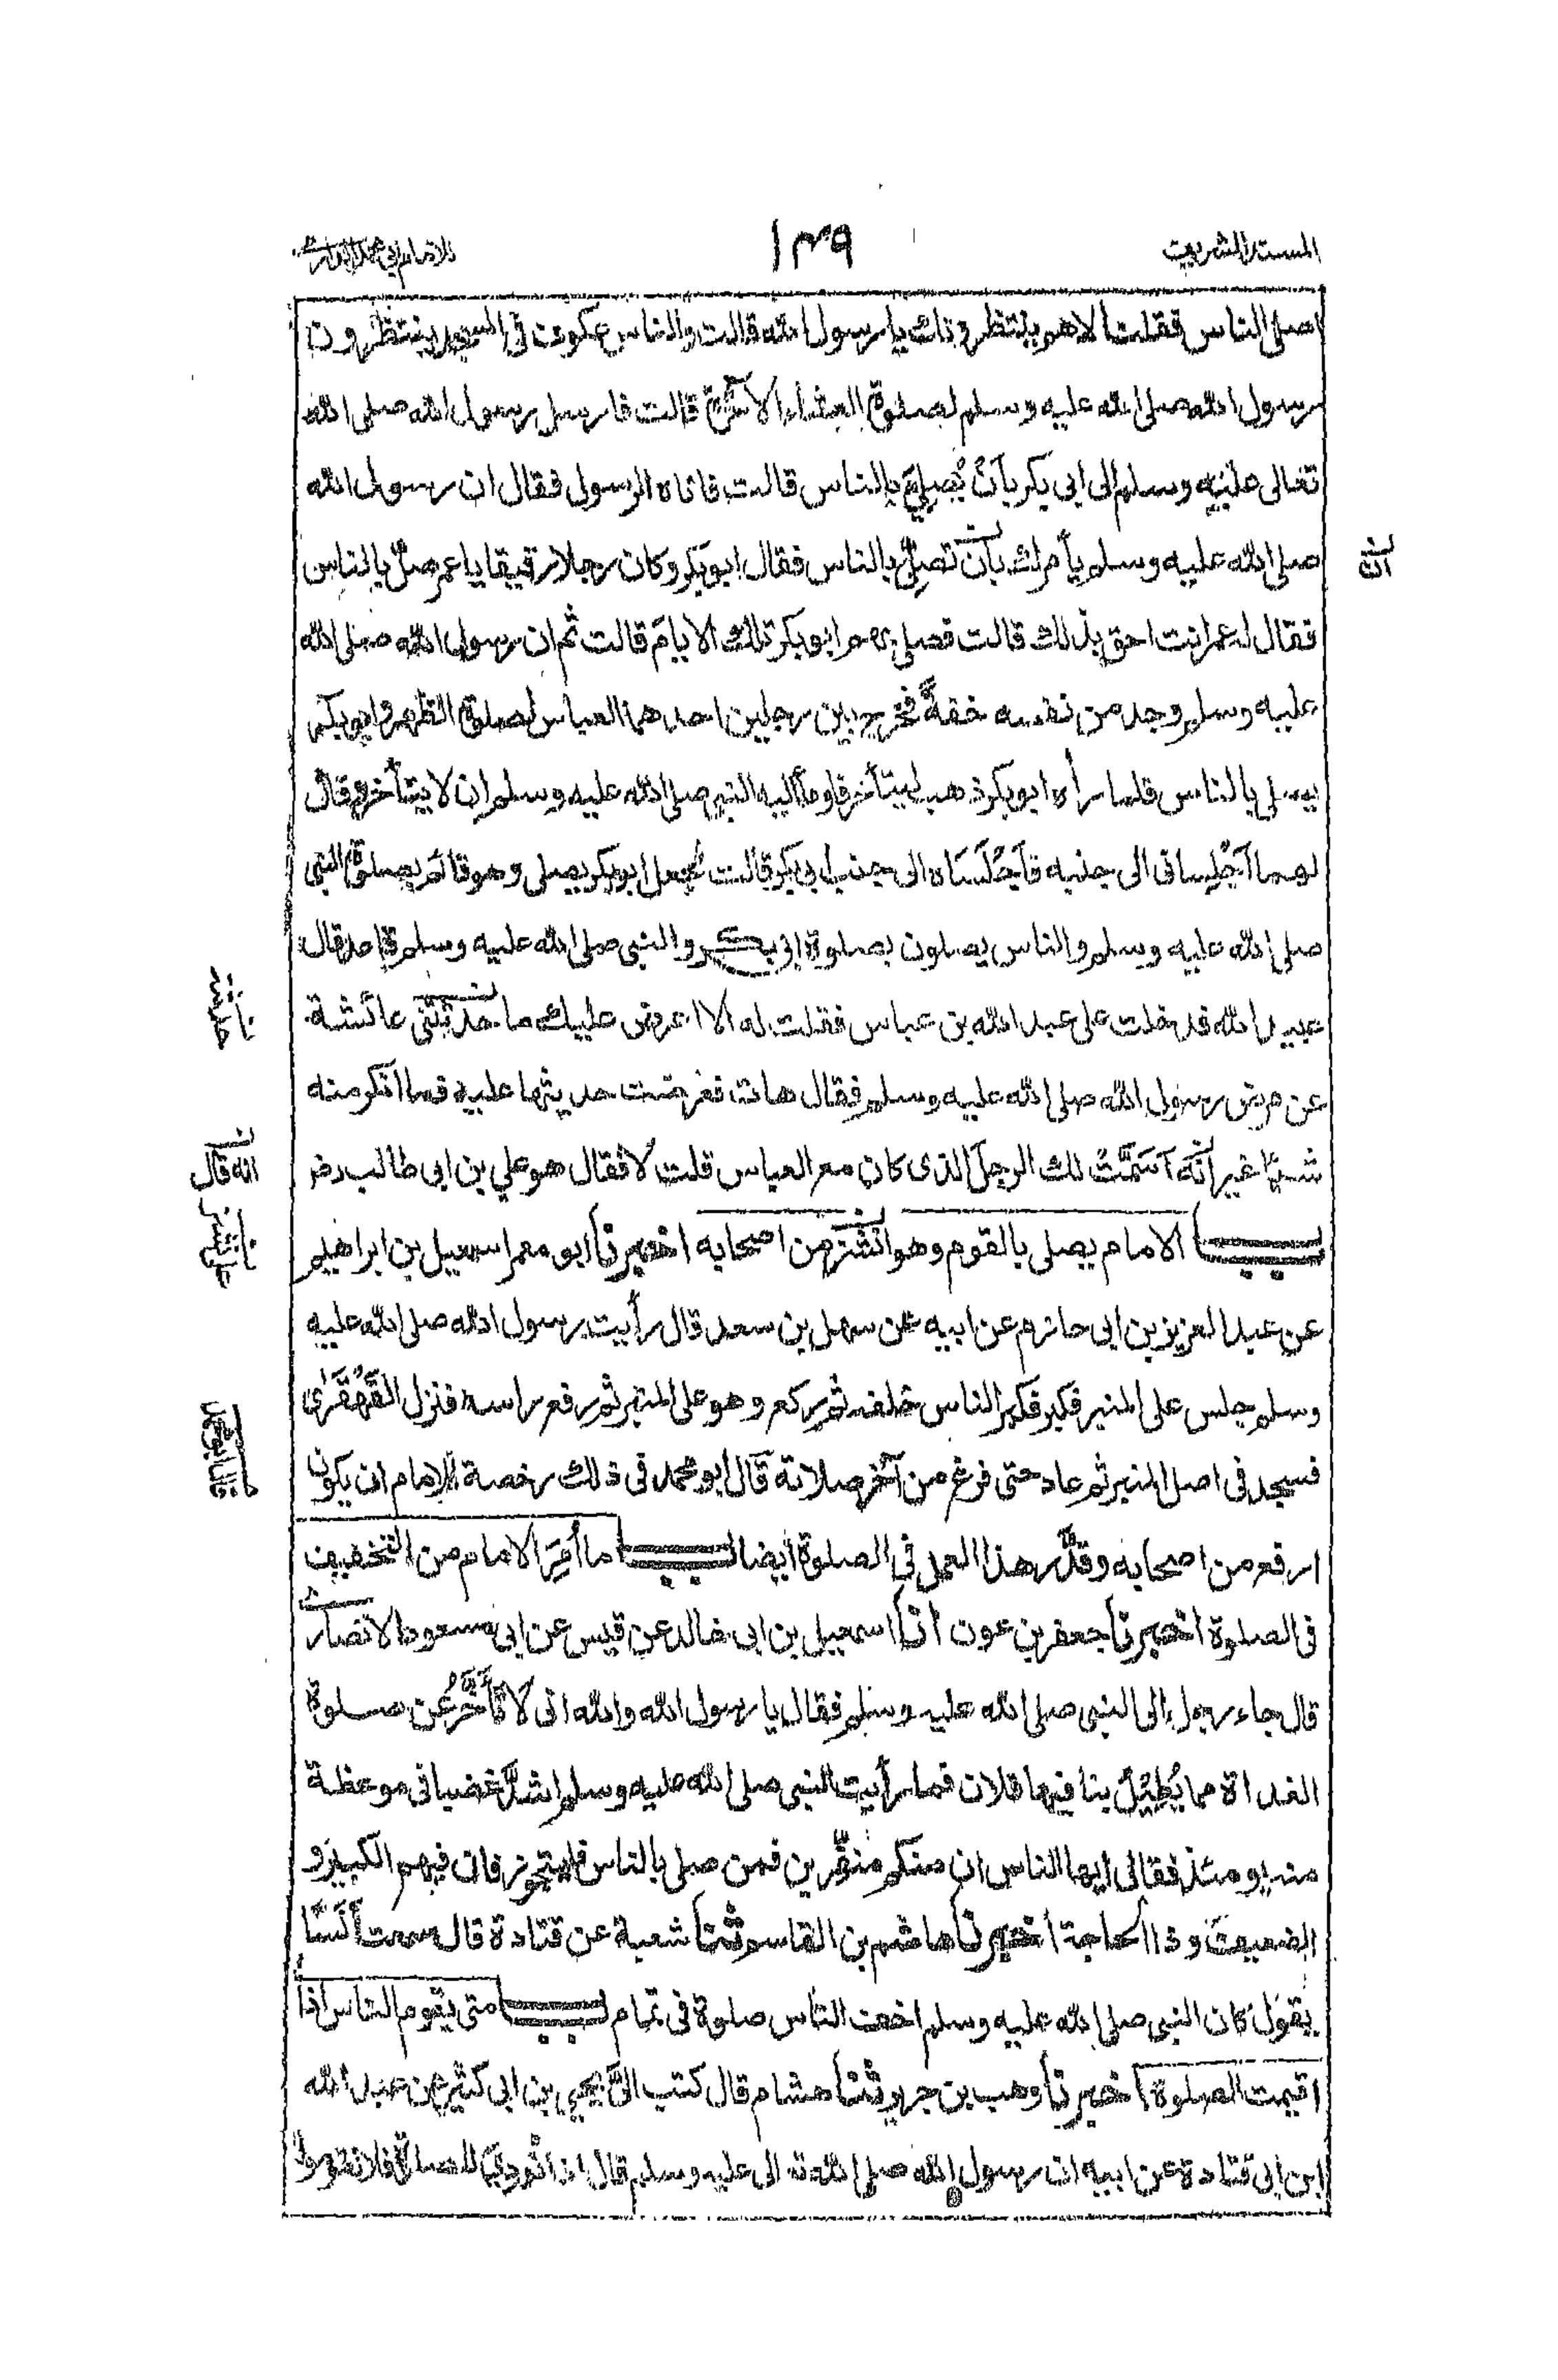 المسند الشريف
١٣٩
للامام ابي محمد الدارمي
اصلى الناس فقلت لا هم ينتظرونك يا رسول الله قالت والناس عكوف في المسجد ينتظرون
رسول الله صلى الله عليه وسلم لصلوة العشاء الآخرة قالت فارسل رسول الله صلى الله
تعالى عليه وسلم الى ابى بكر بأن يُصلِيَ بالناس قالت فاتاه الرسول فقال ان رسول الله
صلى الله عليه وسلم يأمرك بأن تصلّي بالناس فقال ابو بكر وكان رجلا رقيقا يا عمر صلّ بالناس
فقال له عمر انت احق بذلك قالت فصلى بهم ابو بكر تلك الايامَ قالت ثم ان رسول الله صلى الله
عليه وسلم وجد من نفسه خفةً فخرج بين رجلين احدهما العباس لصلوة الظهر وابو بكر
يصلى بالناس فلما رأه ابو بكر ذهب ليتأخر فاومأ اليه النبي صلى الله عليه وسلم ان لا يتأخر وقال
لهما اَجْلِسانى الى جنبه فاَجْلَسَاه الى جنب ابى بكر قالت فجعل ابو بكر يصلى وهو قائم بصلوة النبى
صلى الله عليه وسلم والناس يصلون بصلوة ابى بكر والنبى صلى الله عليه وسلم قاعد قال
عبيد الله فدخلت على عبد الله بن عباس فقلت له الا اعرض عليك ما حدثتنى عائشة
عن مرض رسول الله صلى الله عليه وسلم فقال هات فعرضت حديثها عليه فما انكر منه
شيئا غير انّه اَسَمَّتْ لك الرجلَ الذى كان مع العباس قلت لا فقال هو علي بن ابى طالب رض
باب الامام يصلى بالقوم وهو انشز من اصحابه اخبرنا ابو معمر اسمعيل بن ابراهيم
عن عبد العزيز بن ابى حازم عن ابيه عن سهل بن سعد قال رأيت رسول الله صلى الله عليه
وسلم جلس على المنبر فكبر فكبر الناس خلفه ثم ركع وهو على المنبر ثم رفع راسه فنزل القَهْقَرٰى
فسجد فى اصل المنبر ثم عاد حتى فرغ من آخر صلاته قال ابو محمد فى ذلك رخصة للامام ان يكون
ارفع من اصحابه وقدّر هذا العمل فى الصلوة ايضا باب ما اُمِرَ الامام من التخفيف
فى الصلوة اخبرنا جعفر بن عون انا اسمعيل بن ابى خالد عن قيس عن ابى مسعود الانصارى
قال جاء رجل الى النبى صلى الله عليه وسلم فقال يا رسول الله والله انى لَاَتَأَخَّرُ عن صلوة
الغداة مما يُطِيْلُ بنا فيها فلان فما رأيت النبى صلى الله عليه وسلم اشدَّ غضبا فى موعظة
منه يومئذ فقال ايها الناس ان منكم منفّرين فمن صلى بالناس فليتجوز فان فيهم الكبيرَ و
الضعيفَ وذا الحاجة اخبرنا هاشم بن القاسم ثنا شعبة عن قتادة قال سمعت اَنَسًا
يقول كان النبى صلى الله عليه وسلم اخف الناس صلوة فى تمام باب متى يقوم الناس اذا
اقيمت الصلوة اخبرنا وهب بن جرير ثنا هشام قال كتب اليَّ يحيى بن ابى كثير عن عبد الله
ابن ابى قتادة عن ابيه ان رسول الله صلى الله تعالى عليه وسلم قال اذا نُودِيَ للصلوة فلا تقوموا
انه قال
قال ابو محمد